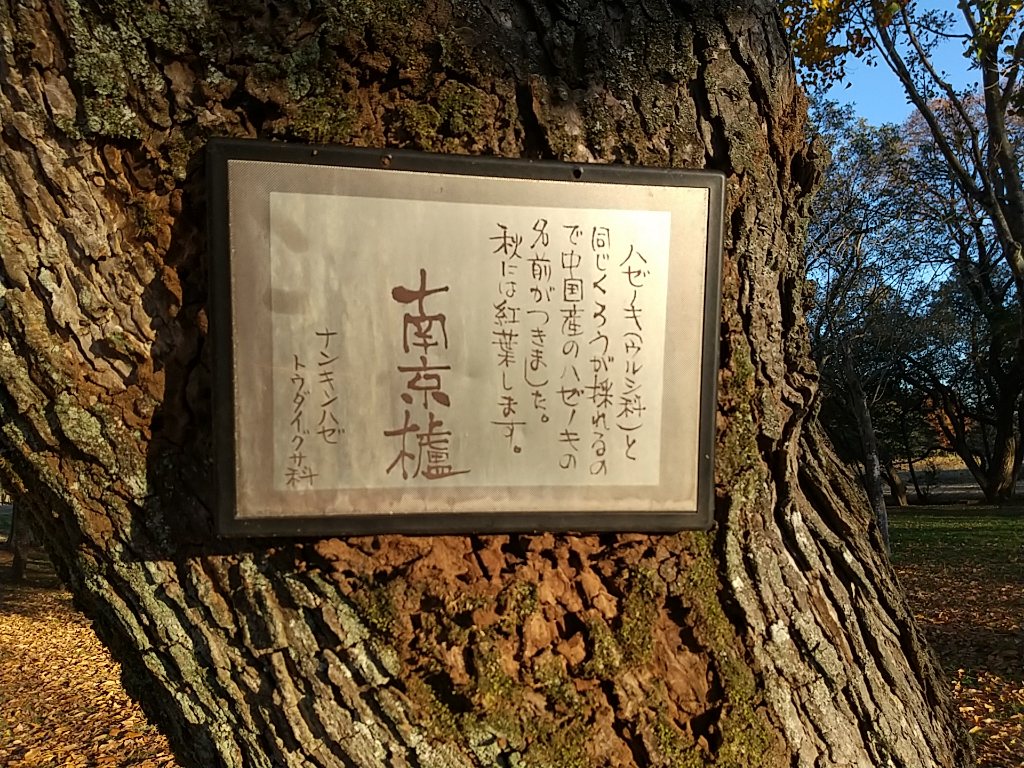 ハゼノキ(ウルシ科)と
同じくろうが採れるの
で中国産のハゼノキの
名前がつきました。
秋には紅葉します。
南京櫨
ナンキンハゼ
トウダイグサ科